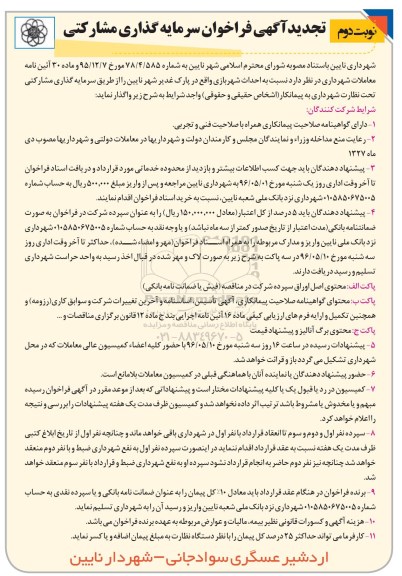 نوبت دوم
تجدید آگهی فراخوان سرمایه گذاری مشارکتی
شهرداری نایین باستناد مصوبه شورای محترم اسلامی شهر نایین به شماره ۷۸/۴/۵۸۵ مورخ ۹۵/۱۲/۷ و ماده ۳۰ آئین نامه
معاملات شهرداری در نظر دارد نسبت به احداث شهربازی واقع در پارک غدیر شهر نایین را از طریق سرمایه گذاری مشارکتی
تحت نظارت شهرداری به پیمانکار (اشخاص حقیقی و حقوقی) واجد شرایط به شرح زیر واگذار نماید:
شرایط شرکت کنندگان:
۱- دارای گواهینامه صلاحیت پیمانکاری همراه با صلاحیت فنی و تجربی.
۲- رعایت منع مداخله وزراء و نمایندگان مجلس و کارمندان دولت و شهرداریها در معاملات دولتی و شهرداریها مصوب دی
ماه ۱۳۳۷
۳- پیشنهاد دهندگان باید جهت کسب اطلاعات بیشتر و بازدید از محدوده خدماتی مورد قرارداد و دریافت اسناد فراخوان
تا آخر وقت اداری روز یک شنبه مورخ ۹۶/۰۵/۰۱ به شهرداری نایین مراجعه و پس از واریز مبلغ ۵۰۰,۰۰۰ ریال به حساب شماره
۰۱۰۵۸۵۰۶۷۵۰۰۵ شهرداری نزد بانک ملی شعبه نایین، نسبت به خرید اسناد فراخوان اقدام نمایند.
۴- پیشنهاد دهندگان باید ۵ درصد از کل اعتبار (معادل ۱۵۰,۰۰۰,۰۰۰ ریال) را به عنوان سپرده شرکت در فراخوان به صورت
ضمانتنامه بانکی (مدت اعتبار از تاریخ صدور کمتر از سه ماه نباشد) و یا وجه نقد به حساب شماره ۰۱۰۵۸۵۰۶۷۵۰۰۵ شهرداری
نزد بانک ملی نایین واریز و مدارک مربوطه را به همراه اسناد فراخوان (مهر و امضاء شده)، حداکثر تا آخر وقت اداری روز
سه شنبه مورخ ۹۶/۰۵/۱۰ در سه پاکت به شرح زیر به صورت لاک و مهر شده در قبال اخذ رسید به واحد حراست شهرداری
تسلیم و رسید دریافت دارند.
پاکت الف: محتوی اصل اوراق سپرده شرکت در مناقصه (فیش یا ضمانت نامه بانکی)
پاکت ب: محتوای گواهینامه صلاحیت پیمانکاری، آگهی تأسیس، اساسنامه و آخرین تغییرات شرکت و سوابق کاری (رزومه) و
همچنین تکمیل و ارایه فرم های ارزیابی کیفی ماده ۱۶ آئین نامه اجرایی بند ج ماده ۱۲ قانون برگزاری مناقصات و ...
پاکت ج: محتوی برگ آنالیز و پیشنهاد قیمت
۵- پیشنهادات رسیده در ساعت ۱۶ روز سه شنبه مورخ ۹۶/۰۵/۱۰ با حضور کلیه اعضاء کمیسیون عالی معاملات که در محل
شهرداری تشکیل می گردد باز و قرائت خواهد شد.
۶- حضور پیشنهاد دهندگان یا نماینده آنان با هماهنگی قبلی در کمیسیون معاملات بلامانع است.
۷- کمیسیون در رد یا قبول یک یا کلیه پیشنهادات مختار است و پیشنهاداتی که بعد از موعد مقرر در آگهی فراخوان رسیده
مبهم و یا مخدوش یا مشروط باشد ترتیب اثر داده نخواهد شد و کمیسیون ظرف مدت یک هفته پیشنهادات را بررسی و نتیجه
را اعلام خواهد کرد.
۸- سپرده نفر اول و دوم و سوم تا انعقاد قرارداد با نفر اول در شهرداری باقی خواهد ماند و چنانچه نفر اول از تاریخ ابلاغ کتبی
ظرف مدت یک هفته نسبت به عقد قرارداد اقدام ننماید در اینصورت سپرده نفر اول به نفع شهرداری ضبط و با نفر دوم منعقد
خواهد شد چنانچه نیز نفر دوم حاضر به انجام قرارداد نشود سپرده او به نفع شهرداری ضبط و قرارداد با نفر سوم منعقد خواهد
شد.
۹- برنده فراخوان در هنگام عقد قرارداد باید معادل ۱۰٪ کل پیمان را به عنوان ضمانت نامه بانکی و یا سپرده نقدی به حساب
شماره ۰۱۰۵۸۵۰۶۷۵۰۰۵ شهرداری نزد بانک ملی شعبه نایین واریز و رسید آن را به شهرداری تسلیم نماید.
۱۰- هزینه آگهی و کسورات قانونی نظیر بیمه، مالیات و عوارض مربوطه به عهده برنده فراخوان می باشد.
۱۱- کارفرما می تواند حداکثر ۲۵ درصد کل پیمان را با نظر دستگاه نظارت به مبلغ پیمان اضافه و یا کسر نماید.
اردشیر عسگری سوادجانی - شهردار نایین
پایگاه اطلاع رسانی مناقصه و مزایده
۰۲۱-۸۸۳۴۹۶۷۰-۵